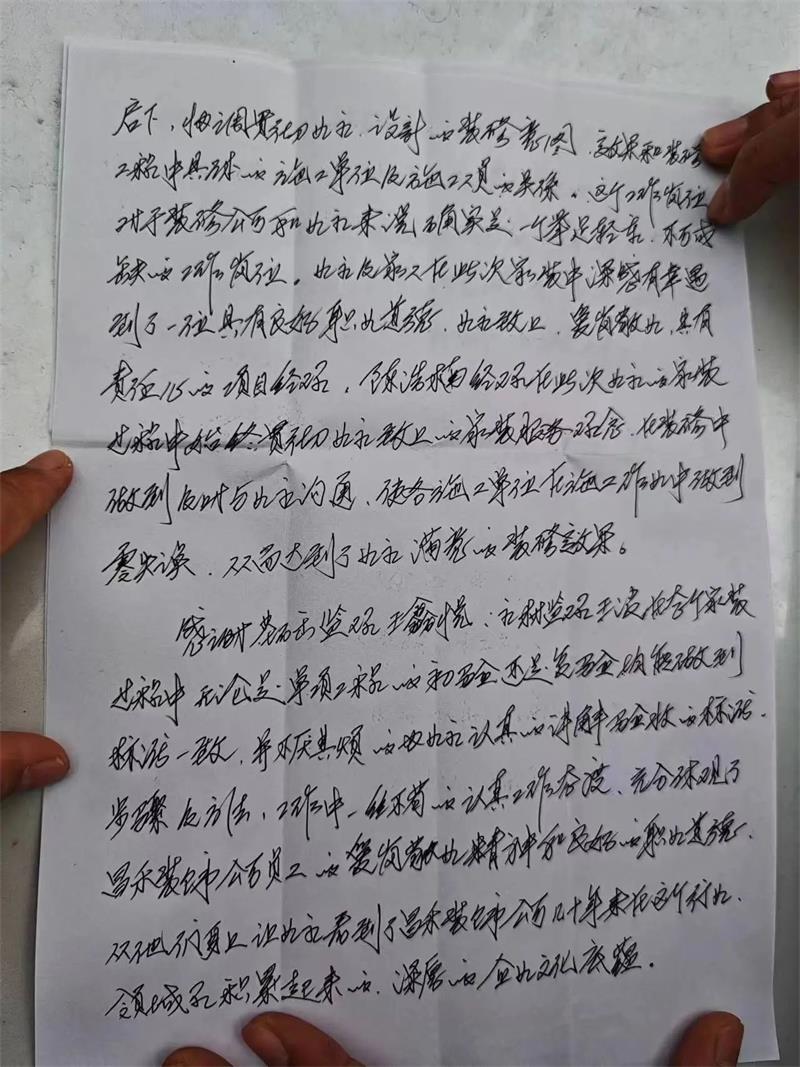 启下，协调贯彻业主、设计的装修意图、效果和装修
工程中具体的施工单位及施工人员的关系。这个工作岗位
对于装修公司和业主来说的确实是一个举足轻重、不可或
缺的工作岗位。业主及家人在此次家装中深感有幸遇
到了一位具有良好职业道德、业主致上、爱岗敬业、具有
责任心的项目经理。陈浩楠经理在此次业主的家装
过程中始终贯彻业主致上的家装服务理念，在装修中
做到及时与业主沟通，使各施工单位在施工作业中做到
零失误，从而达到了业主满意的装修效果。
感谢 监理王鑫悦、主材监理王 在整个家装
过程中无论是单项工程的初验还是复验全均能做到
标准一致，并不厌其烦的教业主认真的讲解验收的标准、
步骤及方法，工作中一丝不苟的认真工作态度，充分体现了
昌禾装饰公司员工的爱岗敬业精神和良好的职业道德，
从他们身上让业主看到了昌禾装饰公司几十年来在这个行业、
领域所积累起来的、深厚的企业文化底蕴。